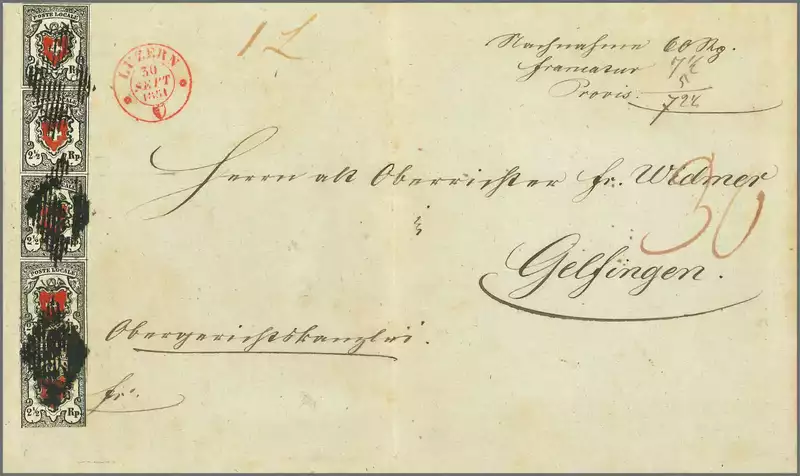 POSTE LOCALE
Rp
2½ Rp.
POSTE LOCALE
2½ Rp.
LUZERN
30
SEPT
1851
Nachnahme 60 Rp.
francatur 7½
Provis. 5
72½
Herrn alt Oberrichter Fr. Widmer
30
Gelfingen.
Obergerichtskanzlei.
fr.